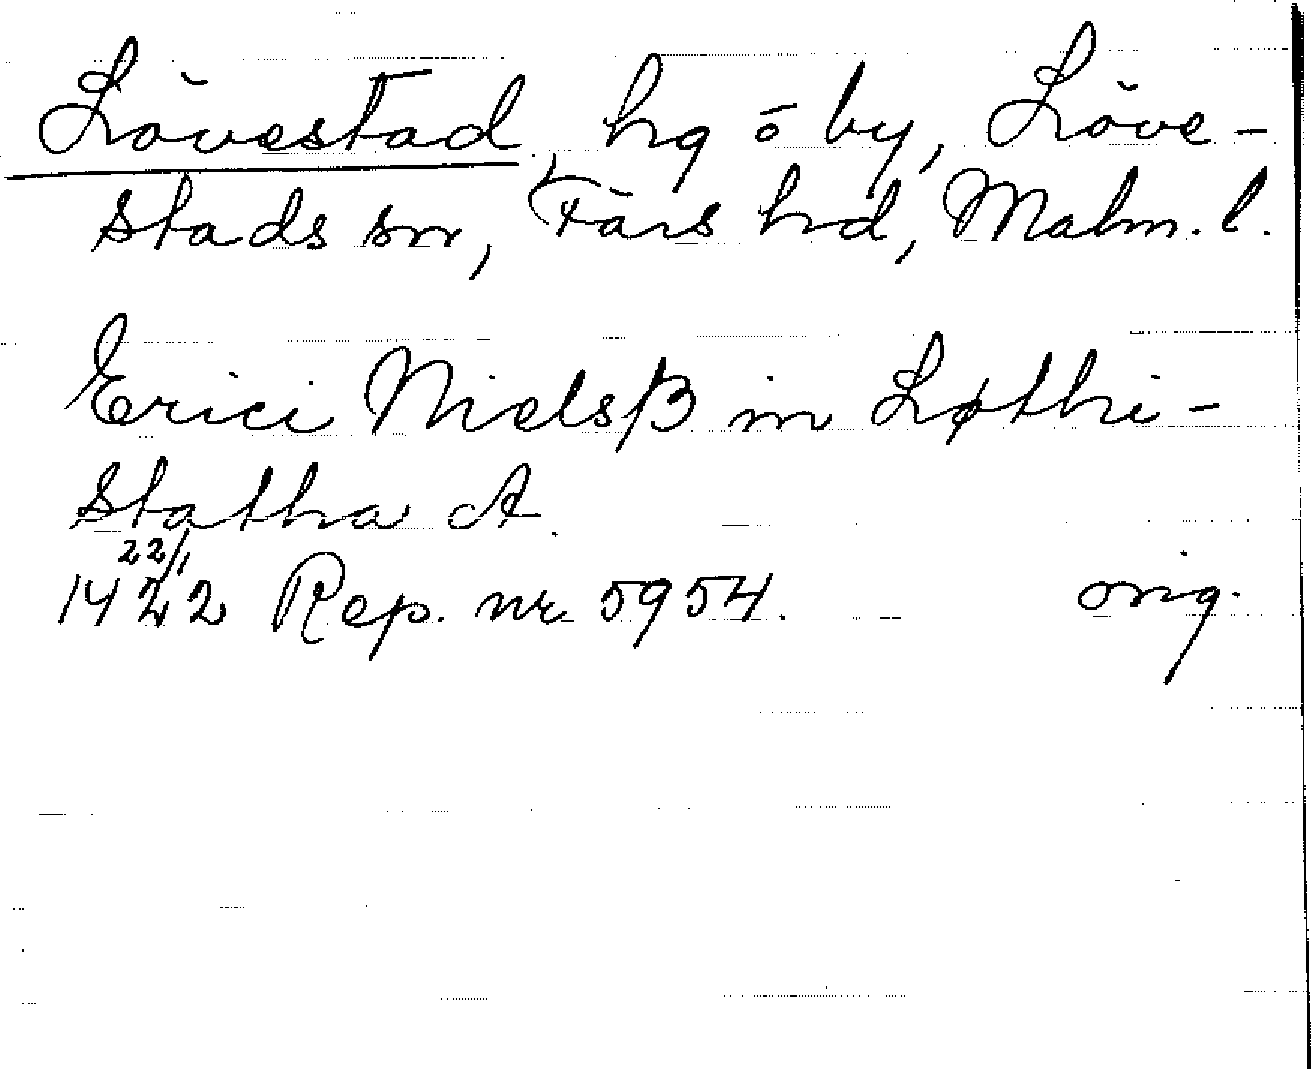 Lövestad, hg o by, Löve-
stads sn, Färs hd, Malm. l.
Erici Nielsß in Løthi-
statha A.
22/1
1422 Rep. nr 5954. orig.